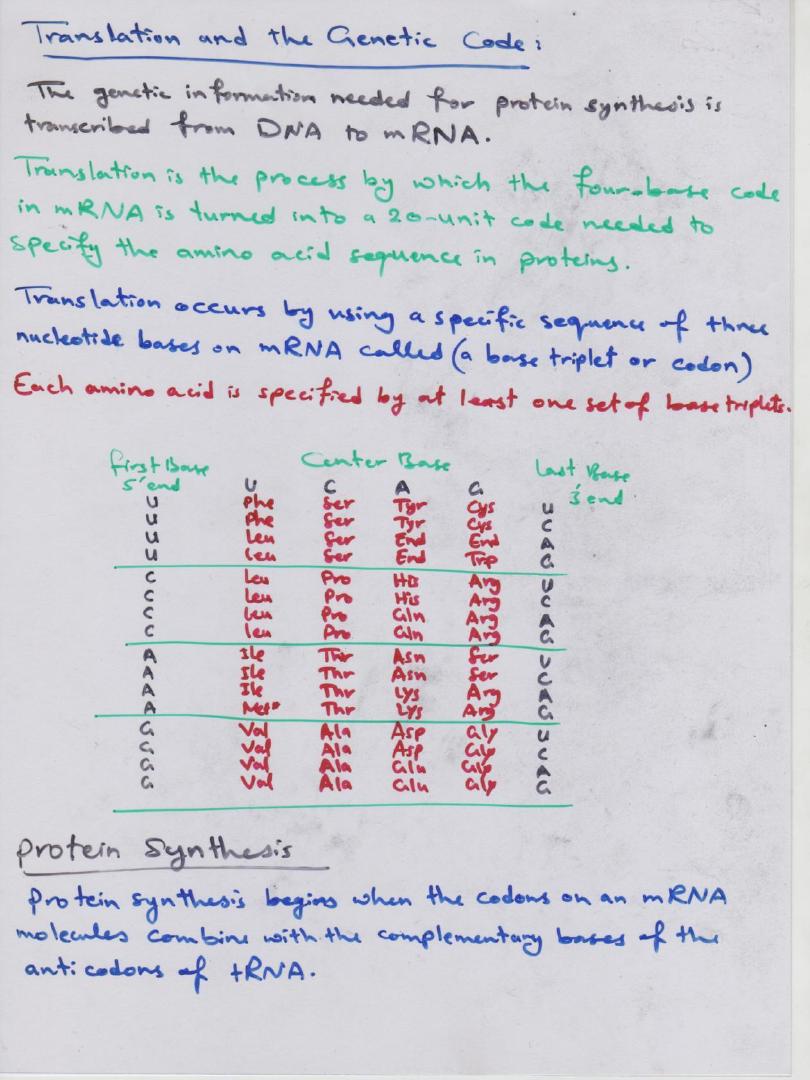 Translation and the Genetic Code:
The genetic information needed for protein synthesis is
transcribed from DNA to mRNA.
Translation is the process by which the four-base code
in mRNA is turned into a 20-unit code needed to
specify the amino acid sequence in proteins.
Translation occurs by using a specific sequence of three
nucleotide bases on mRNA called (a base triplet or codon)
Each amino acid is specified by at least one set of base triplets.
first Base Center Base Last Base
5' end U C A G 3' end
U Phe Ser Tyr Cys U
U Phe Ser Tyr Cys C
U Leu Ser End End A
U Leu Ser End Trp G
C Leu Pro His Arg U
C Leu Pro His Arg C
C Leu Pro Gln Arg A
C Leu Pro Gln Arg G
A Ile Thr Asn Ser U
A Ile Thr Asn Ser C
A Ile Thr Lys Arg A
A Met* Thr Lys Arg G
G Val Ala Asp Gly U
G Val Ala Asp Gly C
G Val Ala Glu Gly A
G Val Ala Glu Gly G
Protein Synthesis
Protein synthesis begins when the codons on an mRNA
molecules combine with the complementary bases of the
anti codons of tRNA.